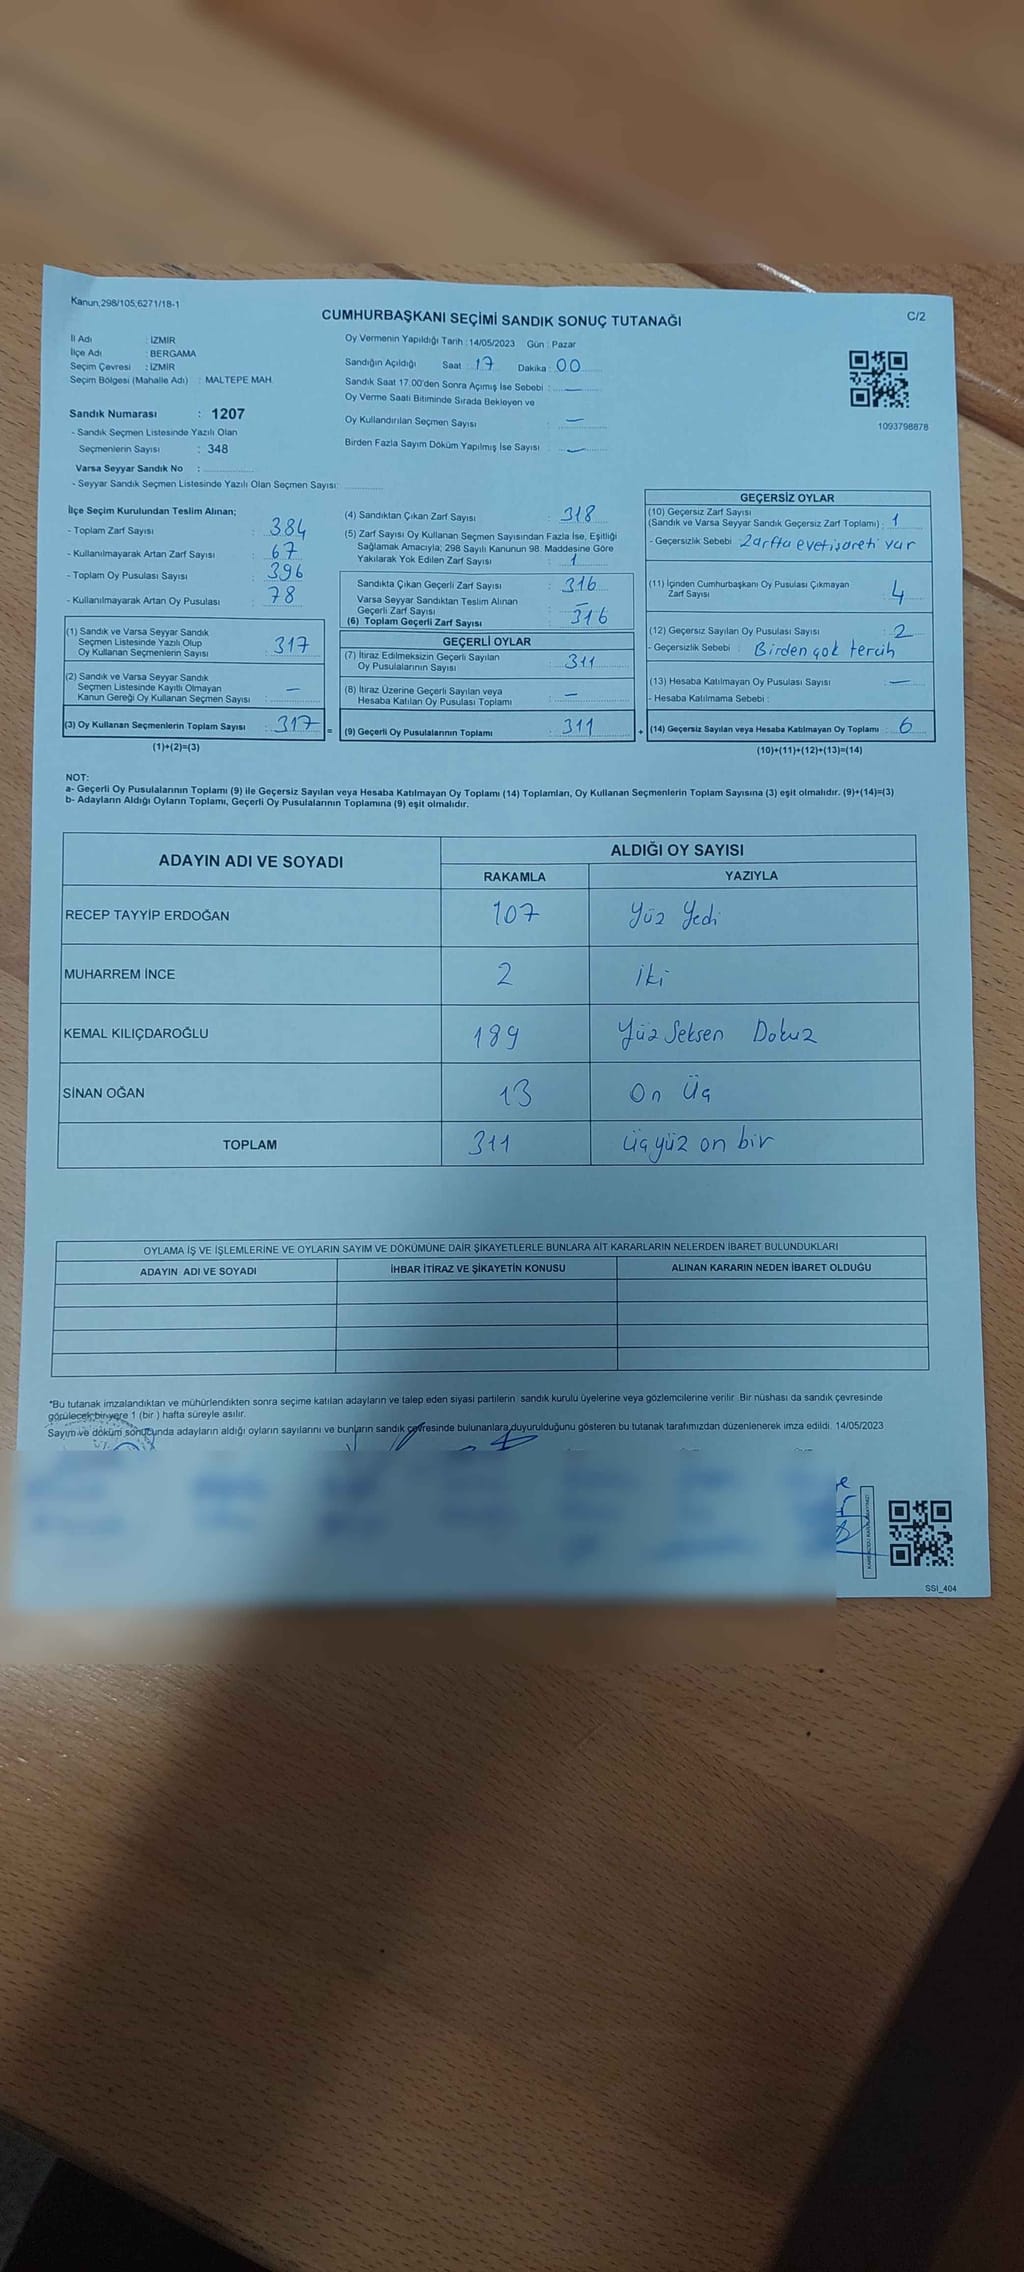 Kanun,298/105,6271/18-1
CUMHURBAŞKANI SEÇİMİ SANDIK SONUÇ TUTANAĞI
C/2
İl Adı : İZMİR
İlçe Adı : BERGAMA
Seçim Çevresi : İZMİR
Seçim Bölgesi (Mahalle Adı) : MALTEPE MAH.
Sandık Numarası : 1207
- Sandık Seçmen Listesinde Yazılı Olan
Seçmenlerin Sayısı : 348
Varsa Seyyar Sandık No :
- Seyyar Sandık Seçmen Listesinde Yazılı Olan Seçmen Sayısı:
Oy Vermenin Yapıldığı Tarih : 14/05/2023 Gün : Pazar
Sandığın Açıldığı Saat : 17 Dakika : 00
Sandık Saat 17.00'den Sonra Açımış İse Sebebi : —
Oy Verme Saati Bitiminde Sırada Bekleyen ve
Oy Kullandırılan Seçmen Sayısı : —
Birden Fazla Sayım Döküm Yapılmış İse Sayısı : —
1093798878
İlçe Seçim Kurulundan Teslim Alınan;
- Toplam Zarf Sayısı : 384
- Kullanılmayarak Artan Zarf Sayısı : 67
- Toplam Oy Pusulası Sayısı : 396
- Kullanılmayarak Artan Oy Pusulası : 78
(1) Sandık ve Varsa Seyyar Sandık
Seçmen Listesinde Yazılı Olup
Oy Kullanan Seçmenlerin Sayısı : 317
(2) Sandık ve Varsa Seyyar Sandık
Seçmen Listesinde Kayıtlı Olmayan
Kanun Gereği Oy Kullanan Seçmen Sayısı : —
(3) Oy Kullanan Seçmenlerin Toplam Sayısı : 317 =
(1)+(2)=(3)
(4) Sandıktan Çıkan Zarf Sayısı : 318
(5) Zarf Sayısı Oy Kullanan Seçmen Sayısından Fazla İse, Eşitliği
Sağlamak Amacıyla; 298 Sayılı Kanunun 98. Maddesine Göre
Yakılarak Yok Edilen Zarf Sayısı : 1
Sandıkta Çıkan Geçerli Zarf Sayısı : 316
Varsa Seyyar Sandıktan Teslim Alınan
Geçerli Zarf Sayısı : —
(6) Toplam Geçerli Zarf Sayısı : 316
GEÇERLİ OYLAR
(7) İtiraz Edilmeksizin Geçerli Sayılan
Oy Pusulalarının Sayısı : 311
(8) İtiraz Üzerine Geçerli Sayılan veya
Hesaba Katılan Oy Pusulası Toplamı : —
(9) Geçerli Oy Pusulalarının Toplamı : 311 +
GEÇERSİZ OYLAR
(10) Geçersiz Zarf Sayısı
(Sandık ve Varsa Seyyar Sandık Geçersiz Zarf Toplamı) : 1
- Geçersizlik Sebebi : Zarfta evet işareti var
(11) İçinden Cumhurbaşkanı Oy Pusulası Çıkmayan
Zarf Sayısı : 4
(12) Geçersiz Sayılan Oy Pusulası Sayısı : 2
- Geçersizlik Sebebi : Birden çok tercih
(13) Hesaba Katılmayan Oy Pusulası Sayısı : —
- Hesaba Katılmama Sebebi :
(14) Geçersiz Sayılan veya Hesaba Katılmayan Oy Toplamı : 6
(10)+(11)+(12)+(13)=(14)
NOT:
a- Geçerli Oy Pusulalarının Toplamı (9) ile Geçersiz Sayılan veya Hesaba Katılmayan Oy Toplamı (14) Toplamları, Oy Kullanan Seçmenlerin Toplam Sayısına (3) eşit olmalıdır. (9)+(14)=(3)
b- Adayların Aldığı Oyların Toplamı, Geçerli Oy Pusulalarının Toplamına (9) eşit olmalıdır.
ADAYIN ADI VE SOYADI
ALDIĞI OY SAYISI
RAKAMLA YAZIYLA
RECEP TAYYİP ERDOĞAN 107 Yüz Yedi
MUHARREM İNCE 2 İki
KEMAL KILIÇDAROĞLU 189 Yüz Seksen Dokuz
SİNAN OĞAN 13 On Üç
TOPLAM 311 Üçyüz on bir
OYLAMA İŞ VE İŞLEMLERİNE VE OYLARIN SAYIM VE DÖKÜMÜNE DAİR ŞİKAYETLERLE BUNLARA AİT KARARLARIN NELERDEN İBARET BULUNDUKLARI
ADAYIN ADI VE SOYADI İHBAR İTİRAZ VE ŞİKAYETİN KONUSU ALINAN KARARIN NEDEN İBARET OLDUĞU
*Bu tutanak imzalandıktan ve mühürlendikten sonra seçime katılan adayların ve talep eden siyasi partilerin sandık kurulu üyelerine veya gözlemcilerine verilir. Bir nüshası da sandık çevresinde
görülecek bir yere 1 (bir ) hafta süreyle asılır.
Sayım ve döküm sonucunda adayların aldığı oyların sayılarını ve bunların sandık çevresinde bulunanlara duyurulduğunu gösteren bu tutanak tarafımızdan düzenlenerek imza edildi. 14/05/2023
SSI_404